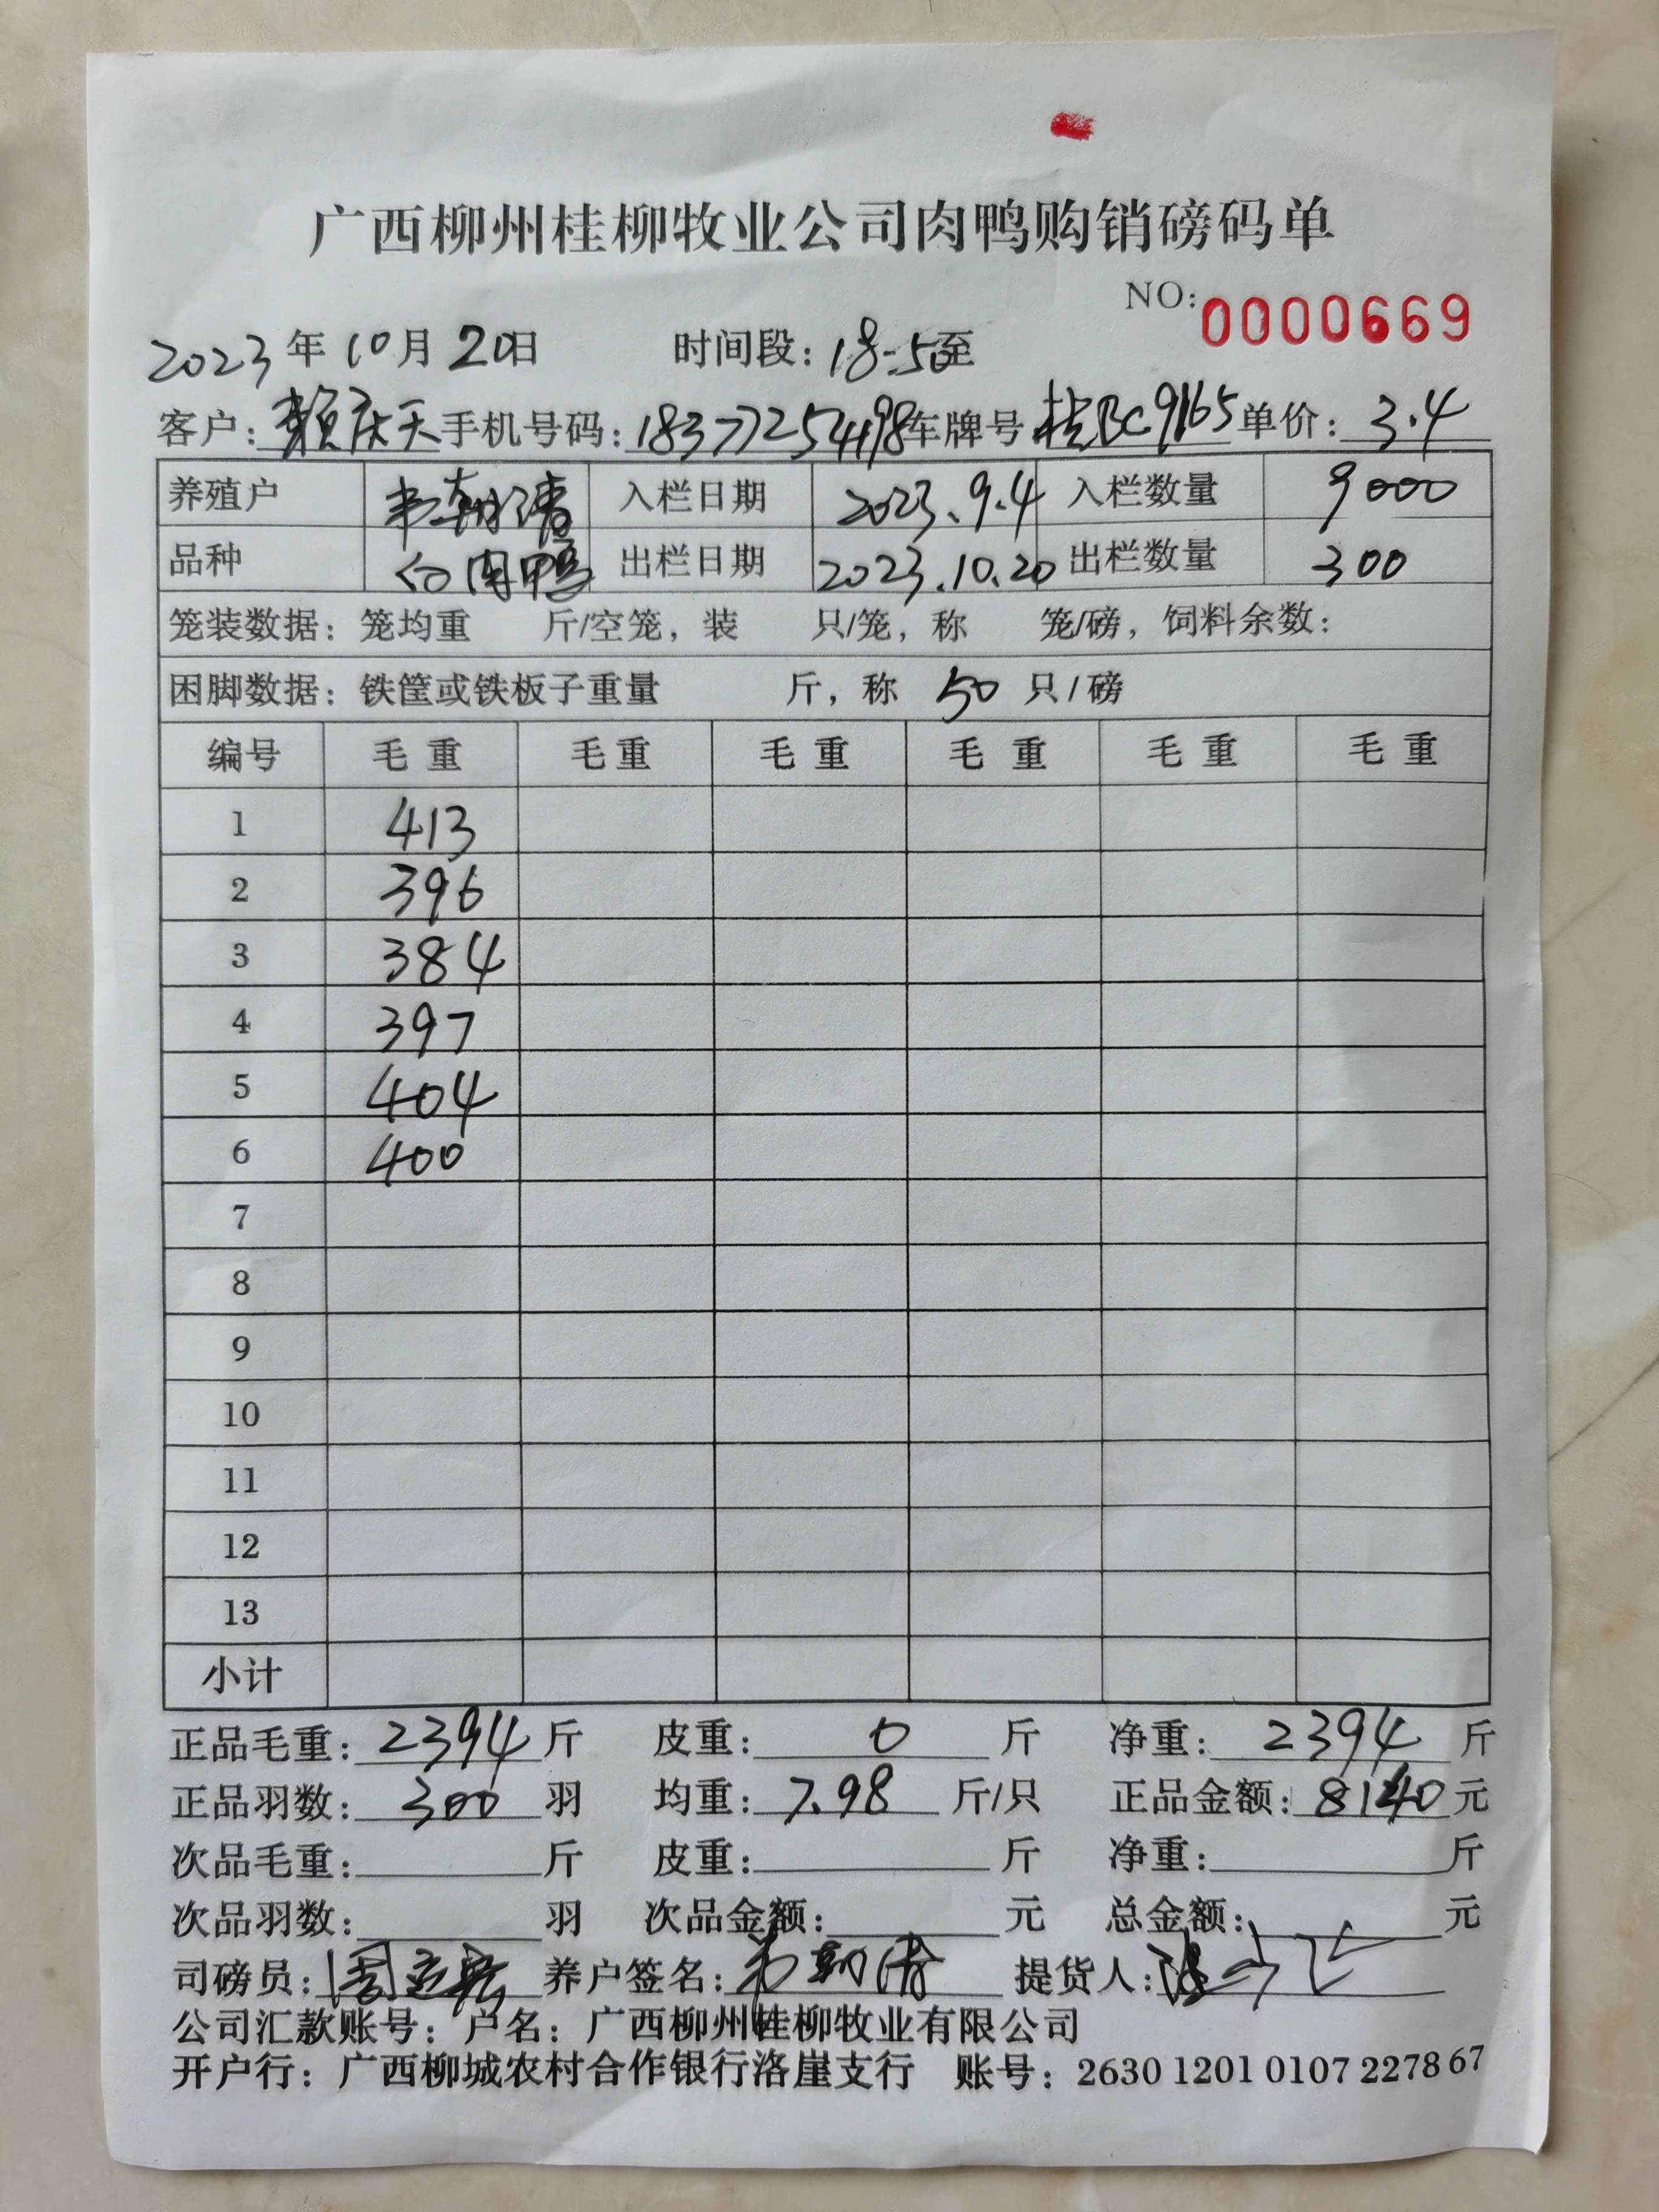 广西柳州桂柳牧业公司肉鸭购销磅码单
NO: 0000669
2023年10月20日 时间段: 18-50至
客户: 赖庆天 手机号码: 18377254498 车牌号 桂BC9165 单价: 3.4
养殖户 韦朝清 入栏日期 2023.9.4 入栏数量 9000
品种 白肉鸭 出栏日期 2023.10.20 出栏数量 300
笼装数据: 笼均重 斤/空笼, 装 只/笼, 称 笼/磅, 饲料余数:
困脚数据: 铁筐或铁板子重量 斤, 称 50 只/磅
编号 毛重 毛重 毛重 毛重 毛重 毛重
1 413
2 396
3 384
4 397
5 404
6 400
7
8
9
10
11
12
13
小计
正品毛重: 2394 斤 皮重: 0 斤 净重: 2394 斤
正品羽数: 300 羽 均重: 7.98 斤/只 正品金额: 8140 元
次品毛重: 斤 皮重: 斤 净重: 斤
次品羽数: 羽 次品金额: 元 总金额: 元
司磅员: 养户签名: 韦朝清 提货人:
公司汇款账号: 户名: 广西柳州桂柳牧业有限公司
开户行: 广西柳城农村合作银行洛崖支行 账号: 2630 1201 0107 2278 67